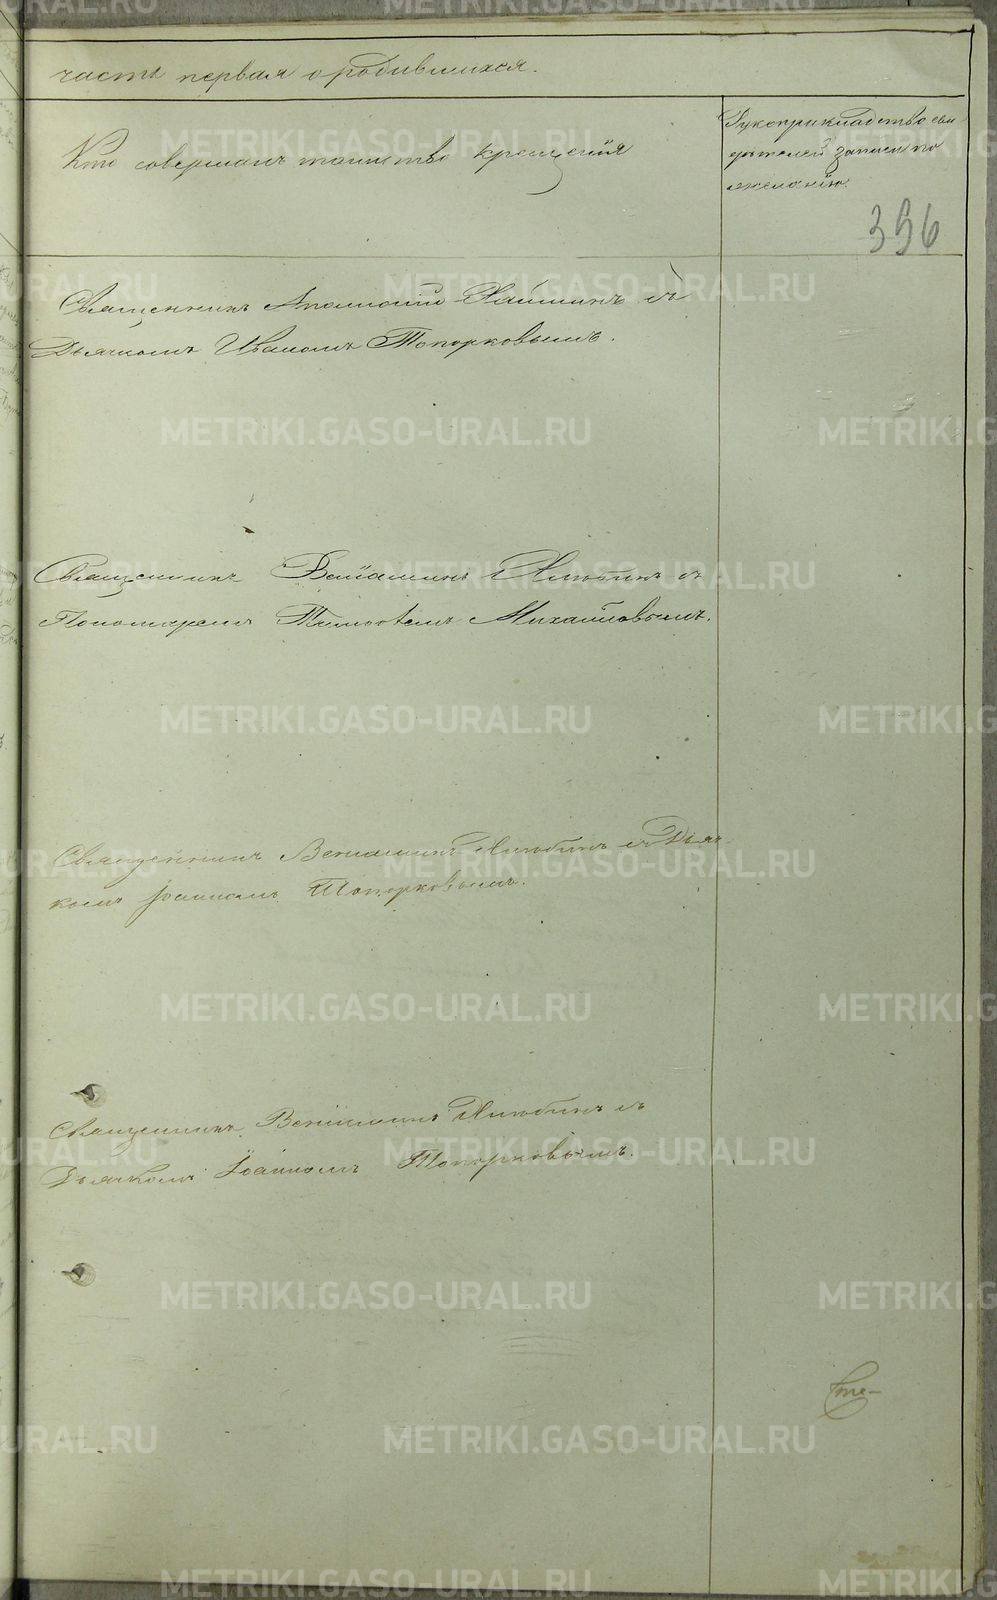 часть первая о родившихся.
Кто совершалъ таинство крещенія
Рукоприкладство сви
дѣтелей записи по
желанію.
396
Священникъ Анатолій съ
Дьячкомъ Иваномъ Топорковымъ.
Священникъ Веніаминъ Хлюбинъ съ
Пономаремъ Тимофеемъ Михайловымъ.
Священникъ Веніаминъ Хлюбинъ съ Дьяч
комъ Іоанномъ Топорковымъ.
Священникъ Веніаминъ Хлюбинъ съ
Дьячкомъ Іоанномъ Топорковымъ.
METRIKI.GASO-URAL.RU